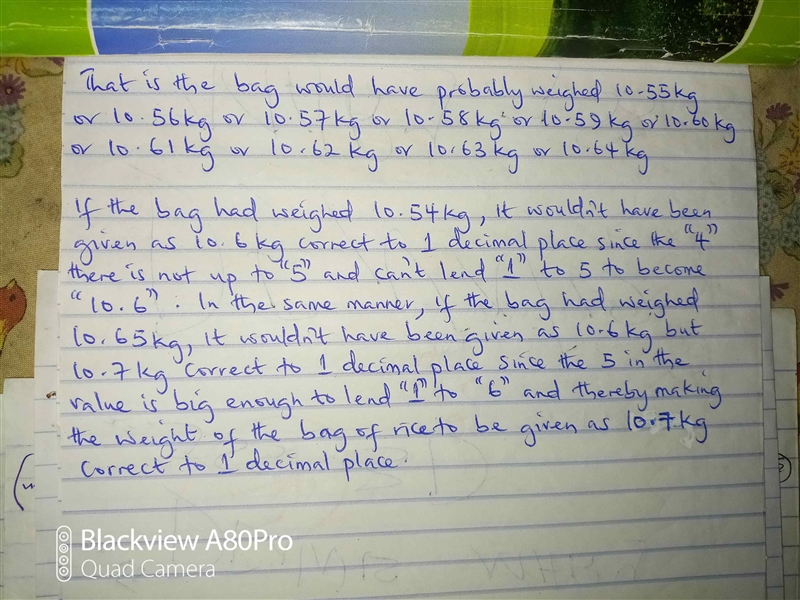 That is the bag would have probably weighed 10.55kg
or 10.56kg or 10.57kg or 10.58kg or 10.59kg or 10.60kg
or 10.61kg or 10.62kg or 10.63kg or 10.64kg
If the bag had weighed 10.54kg, it wouldn't have been
given as 10.6kg correct to 1 decimal place since the "4"
there is not up to "5" and can't lend "1" to 5 to become
"10.6". In the same manner, if the bag had weighed
10.65kg, it wouldn't have been given as 10.6kg but
10.7kg correct to 1 decimal place since the 5 in the
value is big enough to lend "1" to "6" and thereby making
the weight of the bag of rice to be given as 10.7kg
correct to 1 decimal place.
Blackview A80Pro
Quad Camera